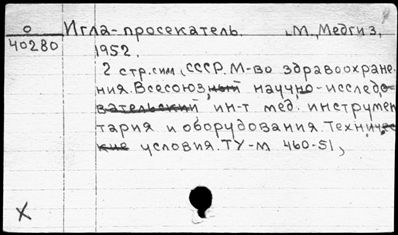 о Игла-просекатель. М., Медгиз,
40280 1952.
2 стр. сим (СССР. М-во здравоохране-
ния. Всесоюзный научно-исследо-
вательский ин-т мед. инструмен
тария и оборудования. Техничес-
кие условия. ТУ-м 460-51,
X